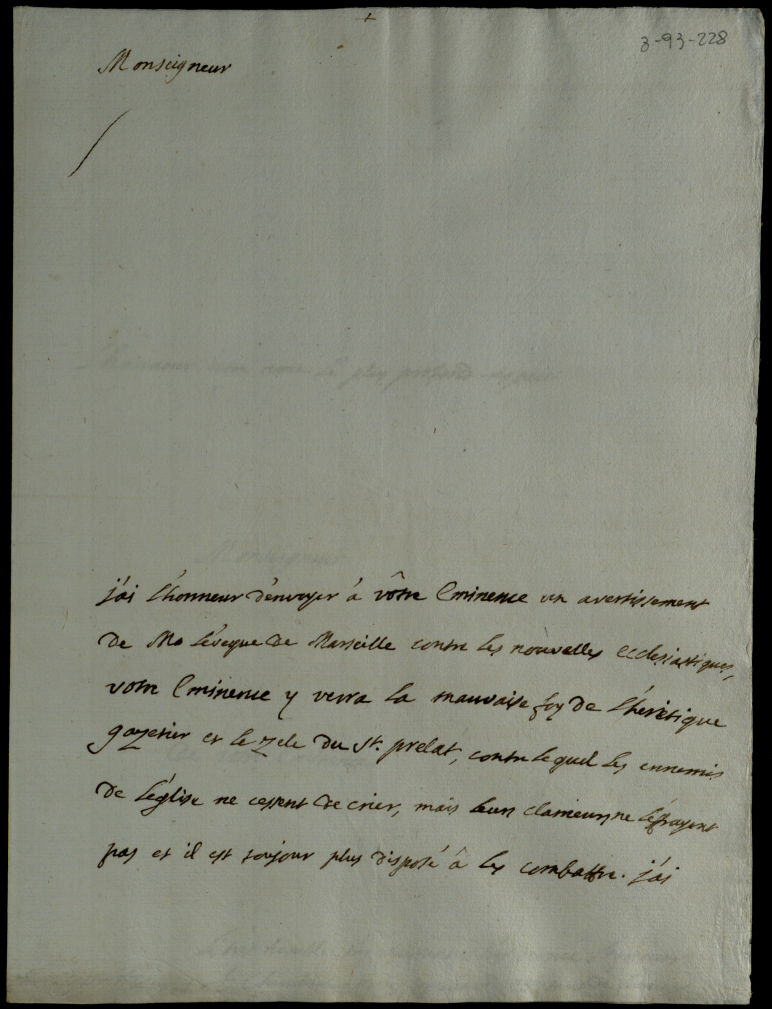 +
3-93-228
Monseigneur
j'ai l'honneur d'envoyer à vôtre Eminence un avertissement
de Mr l'éveque de Marseille contre les nouvelles ecclesiastiques,
votre Eminence y verra la mauvaise foy de l'héretique
gazetier et le zele du St. prelat, contre lequel les ennemis
de l'église ne cessent de crier, mais leurs clameurs ne l'éfrayent
pas et il est toujour plus disposé à les combattre. j'ai